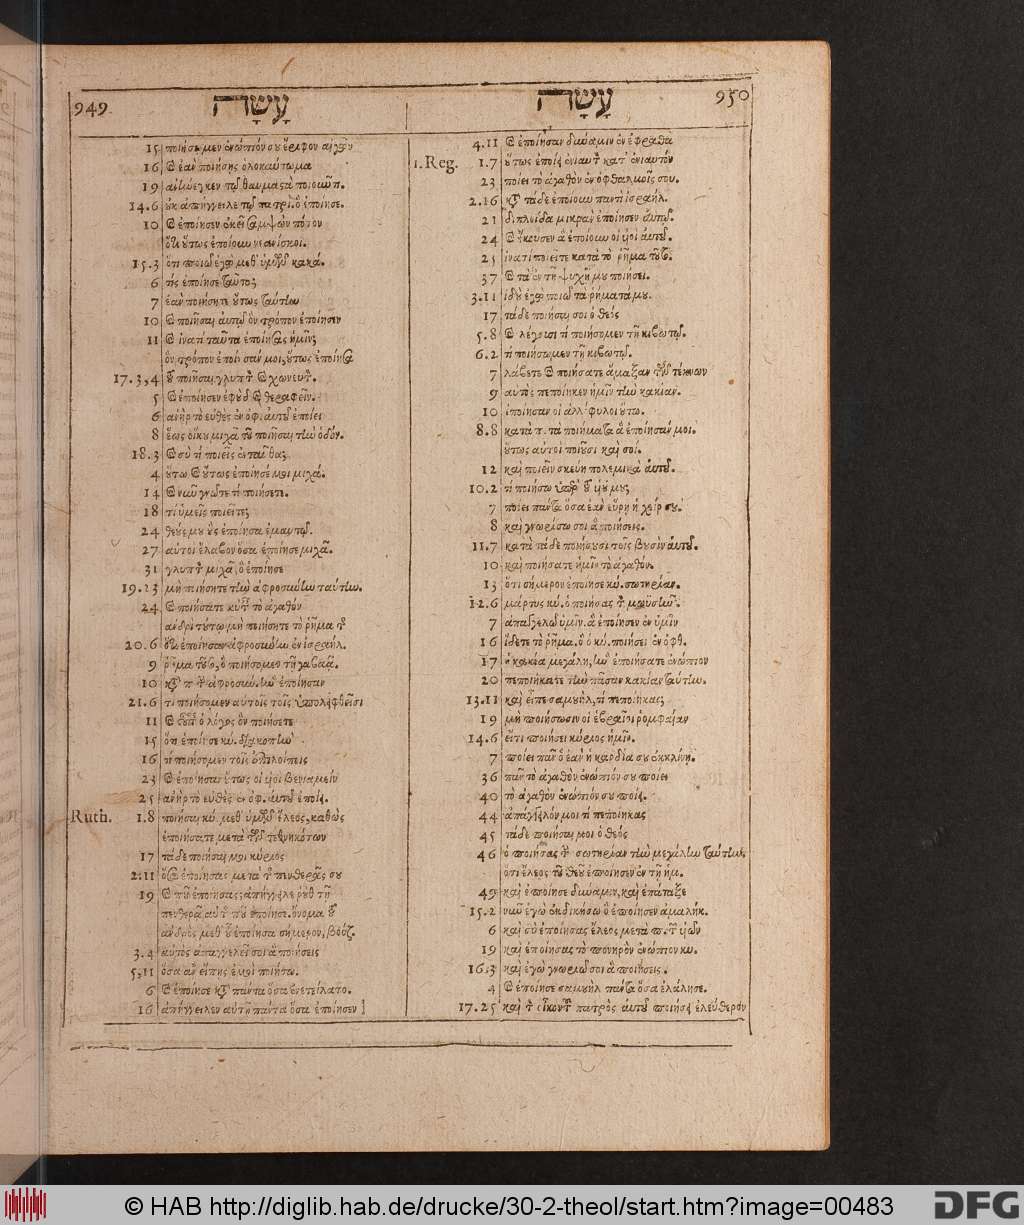 949
עָשָׂה
15 ποιήσωμεν ἐνώπιόν σου ἔριφον αἰγῶν
16 ἐὰν ποιήσῃς ὁλοκαύτωμα
19 θαυμαστὰ
14.6 οὐκ ἀπήγγειλε τῷ πατρὶ. ὃ ἐποίησε.
10 ἐποίησεν ἐκεῖ σαμψὼν πότον
ὅτι οὕτως ἐποίουν νεανίσκοι.
15.3 ὅτι ποιῶ ἐγὼ μεθ' ὑμῶν κακά.
6 τίς ἐποίησε ταῦτα;
7 ἐὰν ποιήσητε οὕτως ταύτην
10 ποιῆσαι αὐτῷ ὃν τρόπον ἐποίησεν
11 ἱνατί ταῦτα ἐποίησας ἡμῖν;
ὃν τρόπον ἐποίησάν μοι, οὕτως ἐποίησα
17.3,4 τοῦ ποιῆσαι γλυπτὸν χωνευτὸν.
5 ἐποίησεν ἐφοὺδ θεραφεῖν.
6 ἀνὴρ τὸ εὐθὲς ἐν ὀφ. αὐτοῦ ἐποίει
8 ἕως οἴκου μιχὰ τοῦ ποιῆσαι τὴν ὁδόν.
18.3 σὺ τί ποιεῖς ἐνταῦθα;
4 οὕτω οὕτως ἐποίησέ μοι μιχά.
14 νῦν γνῶτε τί ποιήσετε.
18 τί ὑμεῖς ποιεῖτε;
24 θεούς μου οὓς ἐποίησα ἐμαυτῷ.
27 αὐτοὶ ἔλαβον ὅσα ἐποίησε μιχὰ.
31 γλυπτὸν μιχὰ, ὃ ἐποίησε
19.23 μὴ ποιήσητε τὴν ἀφροσύνην ταύτην.
24 ποιήσατε τὸ ἀγαθόν
ἀνδρὶ τούτῳ μὴ ποιήσητε τὸ ῥῆμα τ
20.6 ὅτι ἐποίησαν ἀφροσύνην ἐν ἰσραήλ.
9 ῥῆμα τοῦτο, ὃ ποιήσομεν τῇ γαβαὰ.
10 ἀφροσύνην ἐποίησαν
21.6 τί ποιήσομεν αὐτοῖς τοῖς ὑπολειφθεῖσι
11 ὁ λόγος ὃν ποιήσετε
15 ὅτι ἐποίησε κύ. διακοπὴν
16 τί ποιήσομεν τοῖς ἐπιλοίποις
23 ἐποίησαν οὕτως οἱ υἱοὶ βενιαμείν
25 ἀνὴρ τὸ εὐθὲς ἐν ὀφ. αὐτοῦ ἐποίει.
Ruth. 1.8 ποιήσαι κύ. μεθ' ὑμῶν ἔλεος, καθὼς
ἐποιήσατε μετὰ τῶν τεθνηκότων
17 τάδε ποιήσαι μοι κύριος
2:11 ὅσα ἐποίησας μετὰ τῆς πενθερᾶς σου
19 ποῦ ἐποίησας; ἀπήγγειλε ῥοὺθ τῇ
πενθερᾷ αὐτῆς ποῦ ἐποίησε. ὄνομα τοῦ
ἀνδρὸς μεθ' οὗ ἐποίησα σήμερον, βοόζ.
3.4 αὐτὸς ἀπαγγελεῖ σοι ἃ ποιήσεις
5,11 ὅσα ἂν εἴπῃς ἐμοὶ ποιήσω.
6 ἐποίησε κατὰ πάντα ὅσα ἐνετείλατο.
16 ἀπήγγειλεν αὐτῇ πάντα ὅσα ἐποίησεν]
עָשָׂה
950
4.11 ἐποίησαν δύναμιν ἐν ἐφραθά
1.Reg. 1.7 οὕτως ἐποίει ἐνιαυτὸν κατ' ἐνιαυτόν
23 ποίει τὸ ἀγαθὸν ἐν ὀφθαλμοῖς σου.
2.16 κατὰ τάδε ἐποίουν παντὶ ἰσραήλ.
21 διπλοΐδα μικρὰν ἐποίησεν αὐτῷ.
24 ἤκουσεν ἃ ἐποίουν οἱ υἱοὶ αὐτοῦ.
25 ἱνατί ποιεῖτε κατὰ τὸ ῥῆμα τοῦτο.
37 τὰ ἐν τῇ ψυχῇ μου ποιήσει.
3.11 ἰδοὺ ἐγὼ ποιῶ τὰ ῥήματά μου.
17 τάδε ποιήσαι σοι ὁ θεός
5.8 λέγουσι τί ποιήσομεν τῇ κιβωτῷ.
6.2 τί ποιήσωμεν τῇ κιβωτῷ.
7 λάβετε ποιήσατε ἅμαξαν τέκνων
9 αὐτὸς πεποίηκεν ἡμῖν τὴν κακίαν.
10 ἐποίησαν οἱ ἀλλόφυλοι οὕτω.
8.8 κατὰ π. τὰ ποιήματα ἃ ἐποίησάν μοι.
οὕτως αὐτοὶ ποιοῦσι καὶ σοί.
12 καὶ ποιεῖν σκεύη πολεμικὰ αὐτοῦ.
10.2 τί ποιήσω ὑπὲρ τοῦ υἱοῦ μου;
7 ποίει πάντα ὅσα ἐὰν εὕρῃ ἡ χείρ σου.
8 καὶ γνωρίσω σοι ἃ ποιήσεις.
11.7 κατὰ τάδε ποιήσουσι τοῖς βουσὶν αὐτοῦ.
10 καὶ ποιήσατε ἡμῖν τὸ ἀγαθόν.
13 ὅτι σήμερον ἐποίησε κύ. σωτηρίαν.
12.6 μάρτυς κύ. ὁ ποιήσας τὸν μωϋσῆν.
7 ἀπαγγελῶ ὑμῖν. ἃ ἐποίησεν ἐν ὑμῖν
16 ἴδετε τὸ ῥῆμα. ὃ ὁ κύ. ποιήσει ἐν ὀφθ.
17 ἡ κακία μεγάλη, ἣν ἐποιήσατε ἐνώπιον
20 πεποιήκατε τὴν πᾶσαν κακίαν ταύτην.
13.11 καὶ εἶπε σαμουὴλ, τί πεποίηκας;
19 μὴ ποιήσωσιν οἱ ἑβραῖοι ῥομφαίαν
14.6 εἴ τι ποιήσει κύριος ἡμῖν.
7 ποίει πᾶν ὃ ἐὰν ἡ καρδία σου ἐκκλίνῃ.
36 πᾶν τὸ ἀγαθὸν ἐνώπιόν σου ποίει
40 τὸ ἀγαθὸν ἐνώπιόν σου ποίει.
44 ἀπάγγειλόν μοι τί πεποίηκας
45 τάδε ποιήσαι μοι ὁ θεός
46 ὁ ποιήσας τὴν σωτηρίαν τὴν μεγάλην ταύτην,
ὅτι ἔλεος τοῦ θεοῦ ἐποίησεν ἐν τῇ ἡμ.
49 καὶ ἐποίησε δύναμιν, καὶ ἐπάταξε
15.2 νῦν ἐγὼ ἐκδικήσω ὃ ἐποίησεν ἀμαλήκ.
6 καὶ σὺ ἐποίησας ἔλεος μετὰ π. τῶν υἱῶν
19 καὶ ἐποίησας τὸ πονηρὸν ἐνώπιον κυ.
16.3 καὶ ἐγὼ γνωριῶ σοι ἃ ποιήσεις.
4 ἐποίησε σαμουὴλ πάντα ὅσα ἐλάλησε.
17.25 καὶ τὸν οἶκον τοῦ πατρὸς αὐτοῦ ποιήσει ἐλεύθερον
© HAB http://diglib.hab.de/drucke/30-2-theol/start.htm?image=00483
DFG